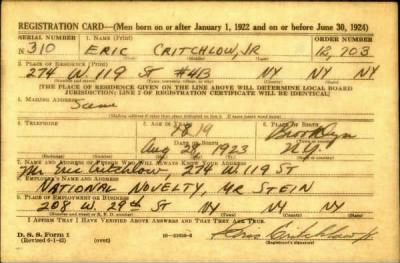 REGISTRATION CARD—(Men born on or after January 1, 1922 and on or before June 30, 1924)
SERIAL NUMBER 1. NAME (Print) ORDER NUMBER
N310 ERIC CRITCHLOW, JR 12,703
2. PLACE OF RESIDENCE (Print)
274 W. 119 ST #4B NY NY NY
[THE PLACE OF RESIDENCE GIVEN ON THE LINE ABOVE WILL DETERMINE LOCAL BOARD
JURISDICTION; LINE 2 OF REGISTRATION CERTIFICATE WILL BE IDENTICAL]
3. MAILING ADDRESS
Same
4. TELEPHONE 5. AGE IN YEARS 6. PLACE OF BIRTH
19 Brooklyn
DATE OF BIRTH
Aug 28, 1923 N.Y.
7. NAME AND ADDRESS OF PERSON WHO WILL ALWAYS KNOW YOUR ADDRESS
Mr Eric Critchlow, 274 W. 119 ST
8. EMPLOYER'S NAME AND ADDRESS
NATIONAL NOVELTY, MR STEIN
9. PLACE OF EMPLOYMENT OR BUSINESS
208 W. 29th ST NY NY NY
I AFFIRM THAT I HAVE VERIFIED ABOVE ANSWERS AND THAT THEY ARE TRUE.
D. S. S. Form 1
(Revised 6-1-42) (over)
Eric Critchlow Jr
(Registrant's signature)